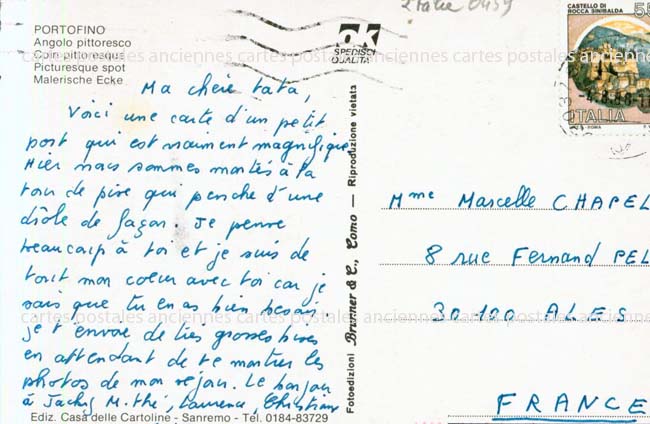 PORTOFINO
Angolo pittoresco
Coin pittoresque
Picturesque spot
Malerische Ecke
OK
SPEDISCI
QUALITA'
Italie 0459
CASTELLO DI
ROCCA SINIBALDA
55
ITALIA
cartes postales anciennes cartes postales anciennes cartes postales anciennes
Ma chère tata,
Voici une carte d'un petit
port qui est vraiment magnifique
Hier nous sommes montés à la
tour de pise qui penche d'une
drôle de façon. Je pense
beaucoup à toi et je suis de
tout mon coeur avec toi car je
sais que tu en as bien besoin
je t'envoie de très grosses bises
en attendant de te montrer les
photos de mon séjour. Le bonjour
à Jacky M. thé, Laurence, Christian
cartes postales anciennes cartes postales anciennes cartes postales anciennes
Ediz. Casa delle Cartoline - Sanremo - Tel. 0184-83729
Fotoedizioni Brunner & C., Como — Riproduzione vietata
Mme Marcelle CHAPEL
8 rue Fernand PEL
30100 ALES
FRANCE